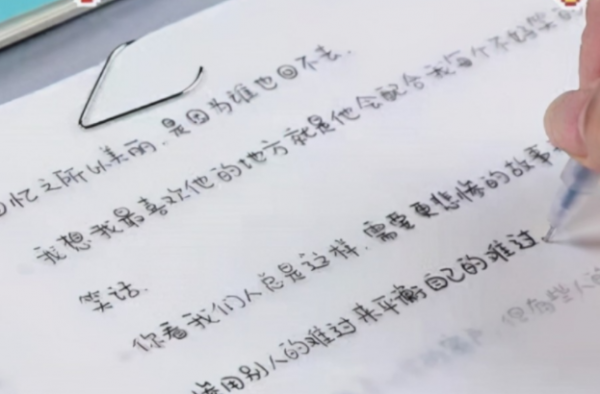 回忆之所以美丽.是因为谁也回不去.
我想我最喜欢他的地方就是他会配合我每个不好笑的
笑话.
你看我们人总是这样.需要更悲惨的故事
用别人的难过来平衡自己的难过。
但有些人的